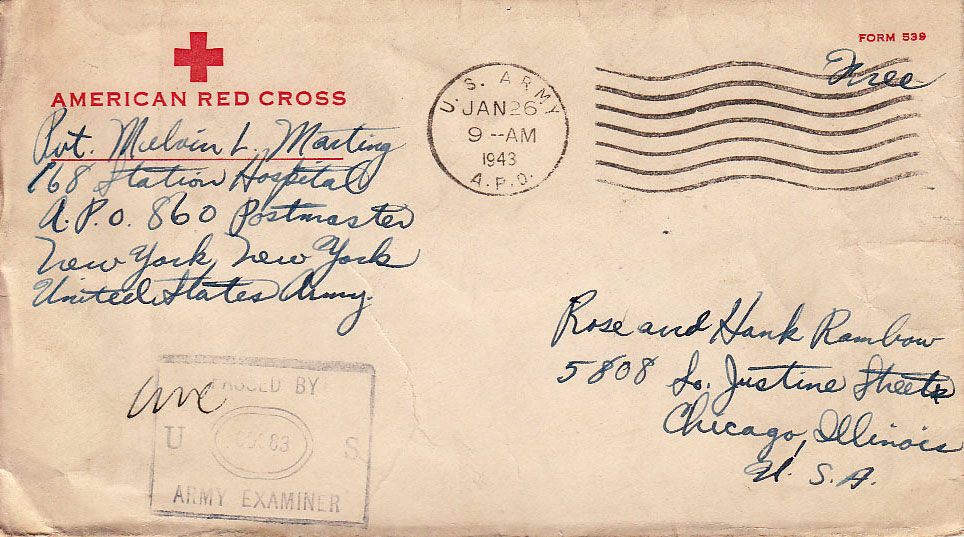 FORM 539
Free
AMERICAN RED CROSS
Pvt. Melvin L. Masting
168 Station Hospital
A.P.O. 860 Postmaster
New York, New York
United States Army.
U.S. ARMY
JAN 26
9--AM
1943
A.P.O.
Rose and Hank Rambow
5808 So. Justine Street
Chicago, Illinois
U.S.A.
PASSED BY
U S
ARMY EXAMINER